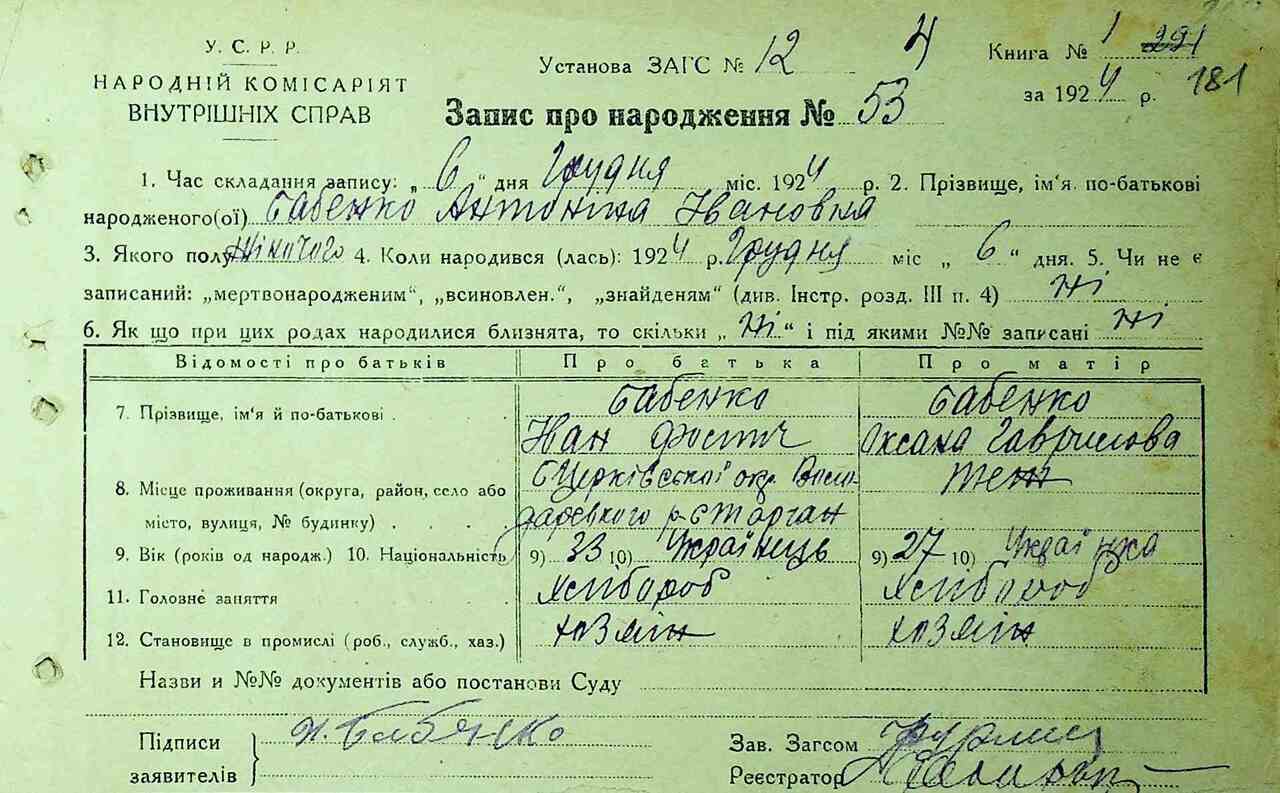 У. С. Р. Р.
НАРОДНІЙ КОМІСАРІЯТ
ВНУТРІШНІХ СПРАВ
Установа ЗАГС № 12 4
Книга № 1 221
за 1924 р. 181
Запис про народження № 53
1. Час складання запису: „ 6 “ дня Грудня міс. 1924 р. 2. Прізвище, ім‘я, по-батькові
народженого(ої) Бабенко Антоніна Івановна
3. Якого полу Жіночого 4. Коли народився (лась): 1924 р. Грудня міс „ 6 “ дня. 5. Чи не є
записаний: „мертвонародженим“, „всиновлен.“, „знайденям“ (див. Інстр. розд. III п. 4) Ні
6. Як що при цих родах народилися близнята, то скільки „ Ні “ і під якими №№ записані Ні
Відомості про батьків Про батька Про матір
7. Прізвище, ім‘я й по-батькові Бабенко Бабенко
Іван Фостич Оксана Гаврилова
8. Місце проживання (округа, район, село або Бцерківської окр. теж
місто, вулиця, № будинку)
9. Вік (років од народж.) 10. Національність 9) 33 10) Українець 9) 27 10) Українка
11. Головне заняття Хлібароб Хлібароб
12. Становище в промислі (роб., служб., хаз.) хозяін хозяін
Назви и №№ документів або постанови Суду
Підписи Бабенко
заявителів
Зав. Загсом
Реєстратор